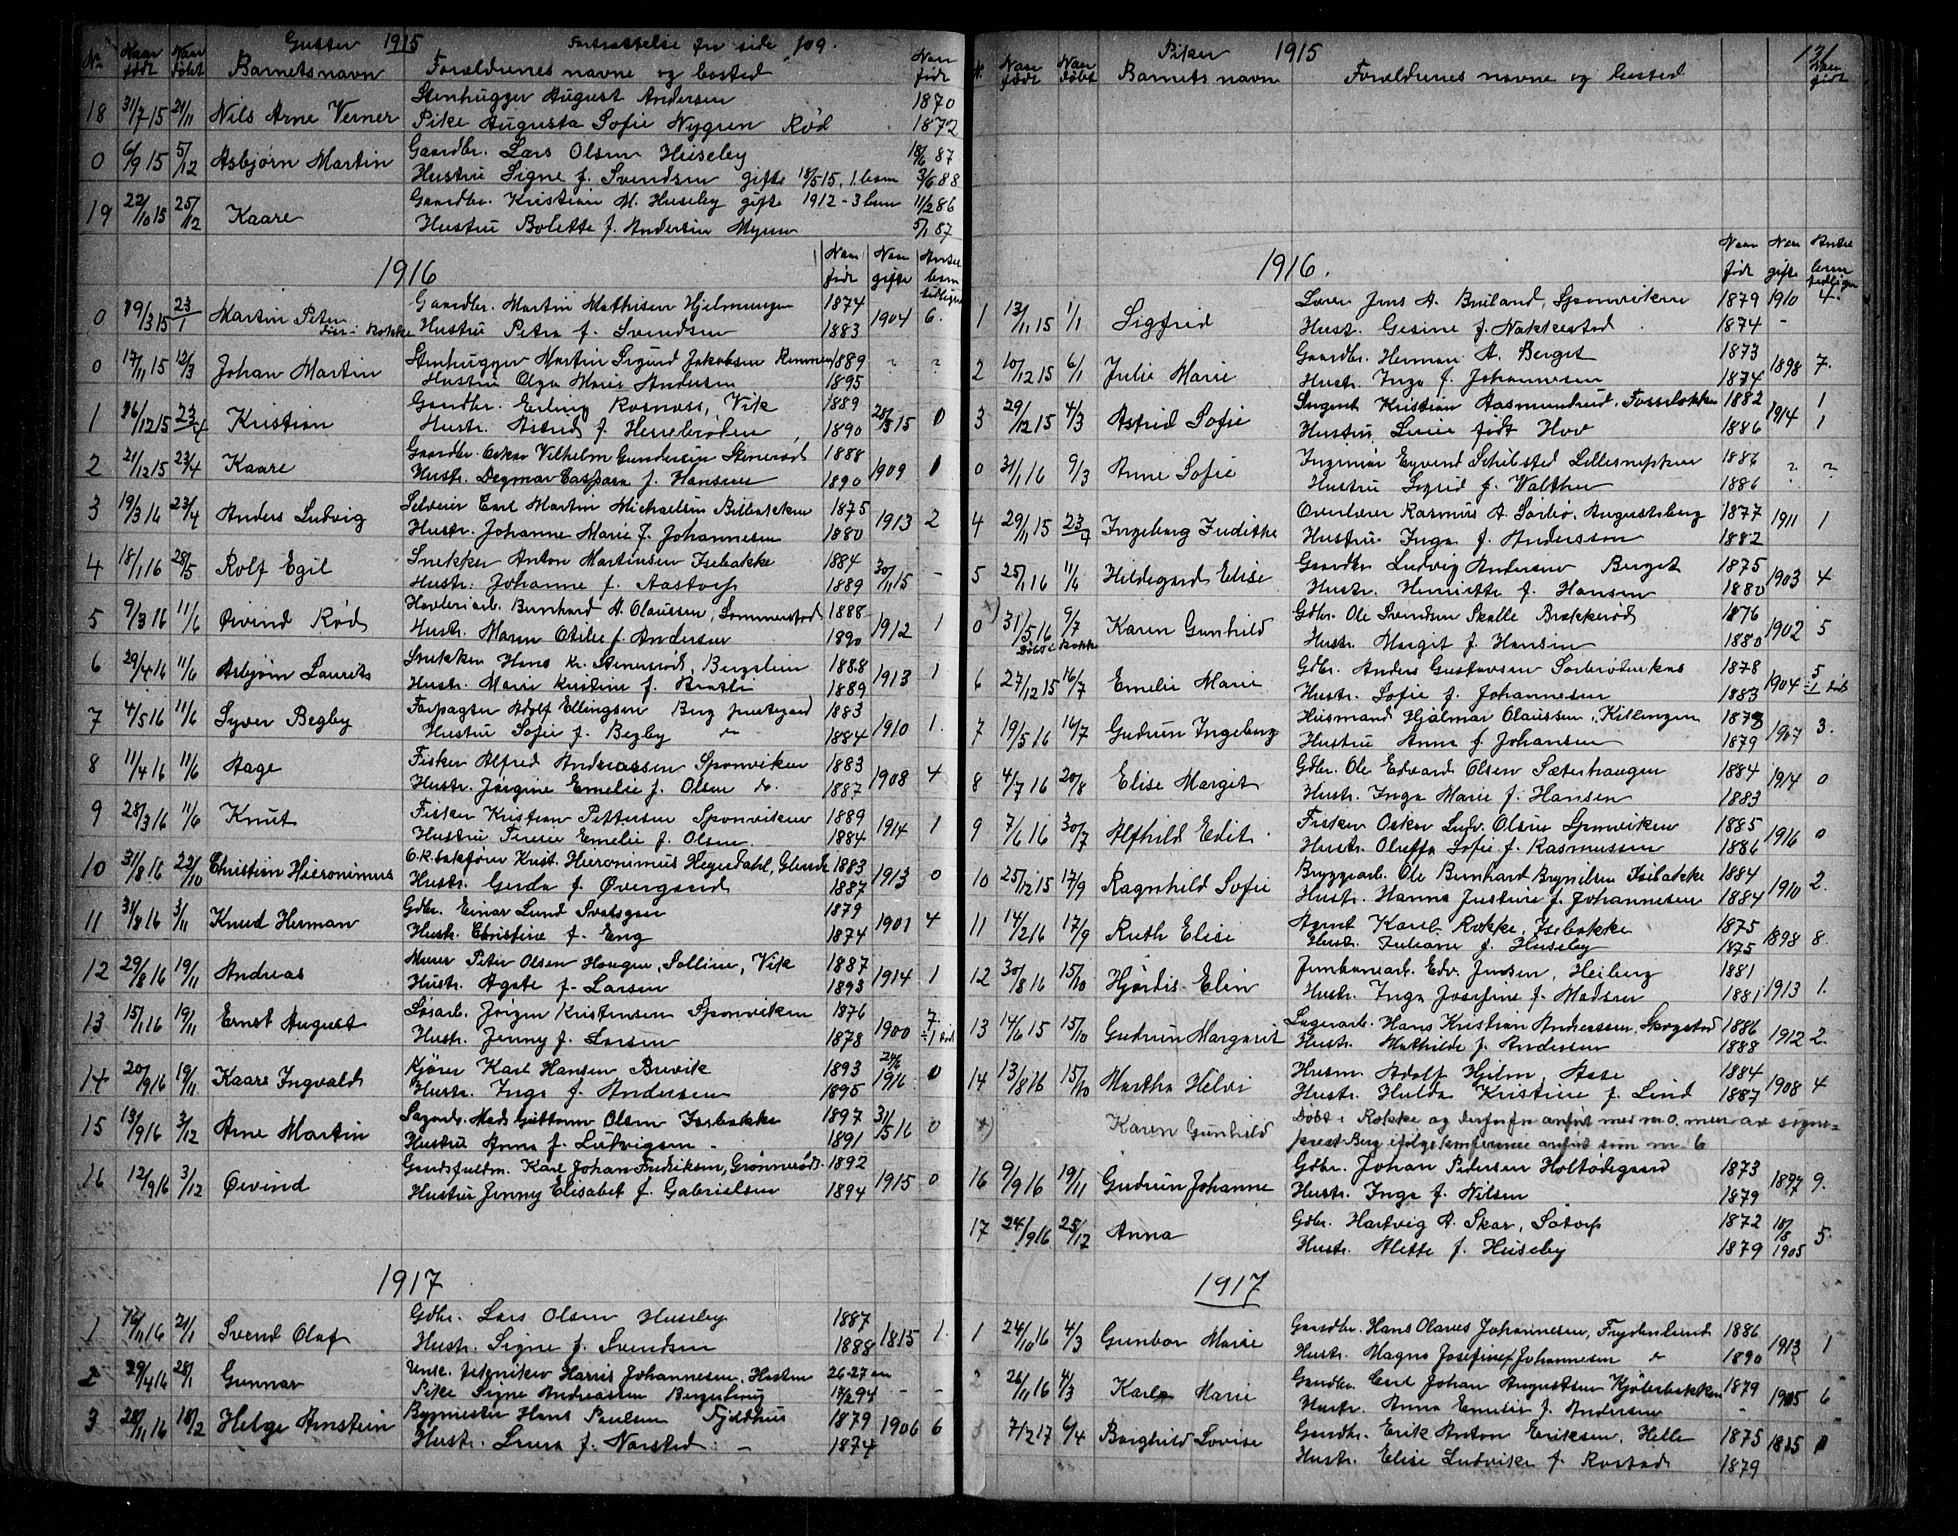 Gutter 1915 Fortsættelse fra side 109.
No Naar født Naar døbt Barnets navn Forældrenes navne og bosted Naar født
18 31/7 15 21/11 Nils Arne Verner Stenhugger August Andersen 1870
Pike Augusta Sofie Nygren Rød 1872
0 6/9 15 5/12 Asbjørn Martin Gaardbr. Lars Olsen Huseby 18/6 87
Hustru Signe f. Svendsen gifte 18/5 15, 1. barn 3/6 88
19 22/10 15 25/12 Kaare Gaardbr. Kristian M. Huseby gifte 1912 - 3 barn 11/2 86
Hustru Bolette f. Andersen 5/1 87
1916 Naar født Naar gifte Antal barn tidligere
0 19/3 15 23/1 Martin Peter Gaardbr. Martin Mathisen 1874 1904 6.
Hustru Petra f. Svendsen 1883
0 17/11 15 12/3 Johan Martin Stenhugger Martin Sigurd Jakobsen Remmen 1889 " "
Hustru Olga Marie Andersen 1895
1 16/12 15 23/4 Kristian Gaardbr. Erling Rosnæss, Vik 1889 28/8 15 0
Hustr. Astrid f. Herrebrøden 1890
2 21/12 15 23/4 Kaare Gaardbr. Oskar Vilhelm Gundersen Stenerød 1888 1909 1
Hustr. Dagmar Caspara f. Hansen 1890
3 19/3 16 23/4 Anders Ludvig Selveier Carl Martin Michaelsen 1875 1913 2
Hustr. Johanne Marie f. Johannesen 1880
4 18/1 16 28/5 Rolf Egil Snekker Anton Martinsen Isebakke 1884 30/11 15 -
Hustr. Johanne f. Aastorp 1889
5 9/3 16 11/6 Øivind Rød Høvleriarb. Bernhard A. Olaussen, Sommerstad 1888 1912 1
Hustr. Maren Otilie f. Andersen 1890
6 29/4 16 11/6 Asbjørn Laurits Snekker Hans Kr. Stenersrød, Bergsheim 1888 1913 1
Hustr. Marie Kristine f. Braatli 1889
7 4/5 16 11/6 Syver Begby Forpagter Adolf Ellingsen Berg prestegaard 1883 1910 1.
Hustru Sofie f. Begby " 1884
8 11/4 16 11/6 Aage Fisker Alfred Andreassen Sponviken 1883 1908 4
Hustr. Jørgine Emelie f. Olsen do. 1887
9 28/3 16 11/6 Knut Fisker Kristian Pettersen Sponviken 1889 1914 1
Hustru Emelie f. Olsen 1884
10 31/8 16 22/10 Christian Hieronimus O.r.sakfører Krist. Hieronimus Heyerdahl, 1883 1913 0
Hustr. Gerda f. Øvergaard 1887
11 31/8 16 3/11 Knud Herman Gdbr. Einar Lund 1879 1901 4
Hustr. Christine f. Eng 1874
12 29/8 16 19/11 Andreas Murer Peter Olsen Haugen, Solline, Vik 1887 1914 1
Hustr. Agate f. Larsen 1893
13 15/1 16 19/11 Ernst August Løsarb. Jørgen Kristensen Sponviken 1876 1900 7.
Hustr. Jenny f. Larsen 1878 ÷ 1 død
14 20/9 16 19/11 Kaare Ingvald Kjører Karl Hansen Brevik 1893 24/6 1916 0
Hustr. Inga f. Andersen 1895
15 13/9 16 3/12 Arne Martin Sagarb. Mads Guttorm Olsen Isebakke 1897 31/5 16 0
Hustru Anna f. Ludvigsen - 1891
16 12/9 16 3/12 Øivind Gaardsfuldm. Karl Johan Fredriksen, Grønnerød 1892 1915 0
Hustru Jenny Elisabet f. Gabrielsen 1894
1917
1 16/11 16 21/1 Svend Olaf Gdbr. Lars Olsen Huseby 1887 1815 1.
Hustr. Signe f. Svendsen 1888
2 29/4 16 28/1 Gunnar Unk. Harris Johannesen, 26-27
Pike Signe Andreassen 14/2 94 - -
3 28/11 16 18/2 Helge Arnstein Bygmester Hans Paulsen Fjeldhus 1879 1906 6
Hustr. Laura f. Narstad - 1874
Piker 1915 131
N. Naar født Naar døbt Barnets navn Forældrenes navne og bosted Naar født
1916. Naar født Naar gifte Antal barn tidligere
1 13/11 15 1/1 Sigfrid Jens A. Sponviken 1879 1910 4.
Hustr. Gesine f. Nakkestad 1874 -
2 10/12 15 6/1 Julie Marie Gaardbr. Herman A. Berget 1873 1898 7.
Hustr. Inga f. Johannesen 1874
3 29/12 15 4/3 Astrid Sofie Sergent Kristian Aasmundrud, Fosseløkken 1882 1914 1
Hustru født Hov 1886 1
0 31/1 16 9/3 Anne Sofie Ingeniør Eyvind Schibsted 1886 " "
Hustru Sigrid f. Walther 1886 " "
4 29/11 15 23/4 Ingeborg Judithe Overlærer Rasmus A. Sørbo, Augustaborg 1877 1911 1
Hustru Inga f. Andersson 1882
5 25/1 16 11/6 Hildegard Elise Gaardbr. Ludvig Andersen Berget 1875 1903 4
Hustr. Henriette f. Hansen 1880
x) 0 31/5 16 9/7 Karen Gunhild Gdbr. Ole Svendsen Skolle Brækkerød 1876 1902 5
Døbt i Rokke Hustr. Margit f. Hansen 1880
6 27/12 15 16/7 Emelie Marie Gdbr. Anders Gustavsen 1878 1904 5
Hustr. Sofie f. Johannesen 1883 ÷ 1 død
7 19/5 16 16/7 Gudrun Ingeborg Husmand Hjalmar Olaussen, Killingen 1878 1907 3.
Hustru Anna f. Johansen 1879
8 4/7 16 20/8 Elise Margit Gdbr. Ole Edvard Olsen Sæterhaugen 1884 1914 0
Hustr. Inga Marie f. Hansen 1883
9 7/6 16 30/7 Alfhild Edit Fisker Oskar Ludv. Olsen Sponviken 1885 1916 0
Hustr. Oluffa Sofie f. Rasmussen 1886
10 25/12 15 17/9 Ragnhild Sofie Bryggearb. Ole Bernhard Brynilsen Isebakke 1884 1910 2.
Hustr. Hanna Justine f. Johannesen 1884
11 14/2 16 17/9 Ruth Elise Agent Karl Rokke, Isebakke 1875 1898 8.
Hustr. Juliane f. Huseby 1875
12 30/8 16 15/10 Hjørdis Elin Jernbanearb. Edv. Jensen, Heiberg 1881 1913 1.
Hustr. Inga Josefine f. Madsen 1881
13 14/6 15 15/10 Gudrun Margarit Lagerarb. Hans Kristian Andreassen, Skogstad 1886 1912 2.
Hustr. Mathilde f. Andersen 1888
14 13/8 16 15/10 Martha Helvi Husm. Adolf Hjelm, Asse 1884 1908 4
Hustr. Hulda Kristine f. Lind 1887
x) Karen Gunhild Døbt i Rokke og derfor før anført med nr 0, men av sogne-
prest Berg ifølge konference anført som nr. 6
16 9/9 16 19/11 Gudrun Johanne Gdbr. Johan Pedersen Holtødegaard 1873 1897 9.
Hustr. Inga f. Nilsen 1879
17 24/9 16 25/12 Anna Gdbr. Hartvig A. Skar, Sotorp 1872 18/8 1905 5.
Hustr. Alette f. Huseby 1879
1917
1 24/10 16 4/3 Gunbor Marie Gaardbr. Hans Olaves Johannesen, Frydenlund 1886 1913 1
Hustr. Magna Josefine f. Johannesen " 1890
2 26/11 16 4/3 Karla Marie Gaardbr. Carl Johan Augustsen Kjølerbakken 1879 1905 6
Hustr. Anna Emelie f. Andersen -
3 7/2 17 6/4 Borghild Lovise Gaardbr. Erik Anton Eriksen, Helle 1875 1885
Hustr. Elise Ludvikke f. Rostad 1879